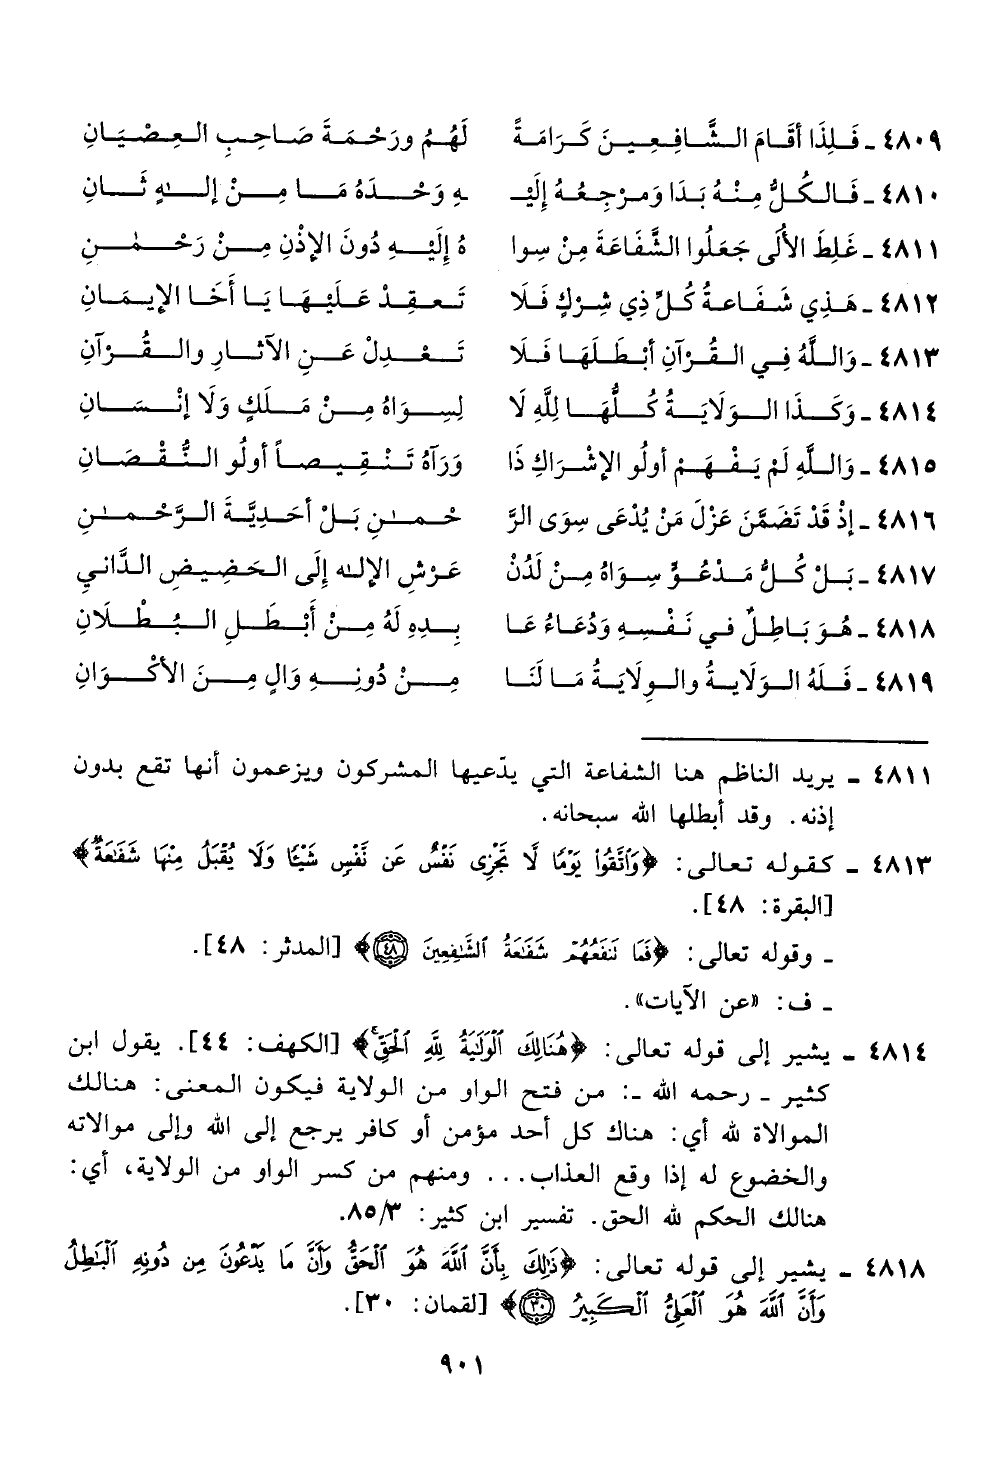 ٤٨٠٩ ـ فَلِذَا أقَامَ الشَّافِعِينَ كَرَامَةً لَهُمُ ورَحْمَةَ صَاحِبِ العِصْيَانِ
٤٨١٠ ـ فَالكُلُّ مِنْهُ بَدَا وَمَرْجِعُهُ إلَيْـ ـهِ وَحْدَهُ مَا مِنْ إلهٍ ثَانِ
٤٨١١ ـ غَلِطَ الأُلَى جَعَلُوا الشَّفَاعَةَ مِنْ سِوا هُ إلَيْهِ دُونَ الإذْنِ مِنْ رَحْمٰنِ
٤٨١٢ ـ هَذِي شَفَاعةُ كُلِّ ذِي شِرْكٍ فَلَا تَعقِدْ عَلَيْهَا يَا أَخَا الإيمَانِ
٤٨١٣ ـ وَاللَّهُ فِي القُرْآنِ أبْطَلَهَا فَلَا تَعْدِلْ عَنِ الآثارِ والقُرْآنِ
٤٨١٤ ـ وَكَذَا الوَلَايَةُ كُلُّهَا لِلَّهِ لَا لِسِوَاهُ مِنْ مَلَكٍ وَلَا إنْسَانِ
٤٨١٥ ـ وَاللَّهِ لَمْ يَفْهَمْ أولُو الإشْرَاكِ ذَا وَرَآهُ تَنْقِيصاً أولُو النُّقْصَانِ
٤٨١٦ ـ إذْ قَدْ تَضَمَّنَ عَزْلَ مَنْ يُدْعَى سِوَى الرَّ حْمٰنِ بَلْ أحَدِيَّةَ الرَّحْمٰنِ
٤٨١٧ ـ بَلْ كُلُّ مَدْعُوٍّ سِوَاهُ مِنْ لَدُنْ عَرْشِ الإلهِ إلَى الحَضِيضِ الدَّانِي
٤٨١٨ ـ هُوَ بَاطِلٌ في نَفْسِهِ وَدُعَاءُ عَا بِدِهِ لَهُ مِنْ أَبْطَلِ البُطْلَانِ
٤٨١٩ ـ فَلَهُ الوَلَايةُ والوِلَايَةُ مَا لَنَا مِنْ دُونِهِ وَالٍ مِنَ الأكْوَانِ
٤٨١١ ـ يريد الناظم هنا الشفاعة التي يدّعيها المشركون ويزعمون أنها تقع بدون
إذنه. وقد أبطلها الله سبحانه.
٤٨١٣ ـ كقوله تعالى: ﴿وَٱتَّقُوا۟ يَوْمًا لَّا تَجْزِى نَفْسٌ عَن نَّفْسٍ شَيْـًٔا وَلَا يُقْبَلُ مِنْهَا شَفَٰعَةٌ﴾
[البقرة: ٤٨].
ـ وقوله تعالى: ﴿فَمَا تَنفَعُهُمْ شَفَٰعَةُ ٱلشَّٰفِعِينَ ۝٤٨﴾ [المدثر: ٤٨].
ـ ف: «عن الآيات».
٤٨١٤ ـ يشير إلى قوله تعالى: ﴿هُنَالِكَ ٱلْوَلَٰيَةُ لِلَّهِ ٱلْحَقِّ﴾ [الكهف: ٤٤]. يقول ابن
كثير ـ رحمه الله ـ: من فتح الواو من الولاية فيكون المعنى: هنالك
الموالاة لله أي: هناك كل أحد مؤمن أو كافر يرجع إلى الله وإلى موالاته
والخضوع له إذا وقع العذاب... ومنهم من كسر الواو من الولاية، أي:
هنالك الحكم لله الحق. تفسير ابن كثير: ٨٥/٣.
٤٨١٨ ـ يشير إلى قوله تعالى: ﴿ذَٰلِكَ بِأَنَّ ٱللَّهَ هُوَ ٱلْحَقُّ وَأَنَّ مَا يَدْعُونَ مِن دُونِهِ ٱلْبَٰطِلُ
وَأَنَّ ٱللَّهَ هُوَ ٱلْعَلِىُّ ٱلْكَبِيرُ ۝٣٠﴾ [لقمان: ٣٠].
٩٠١